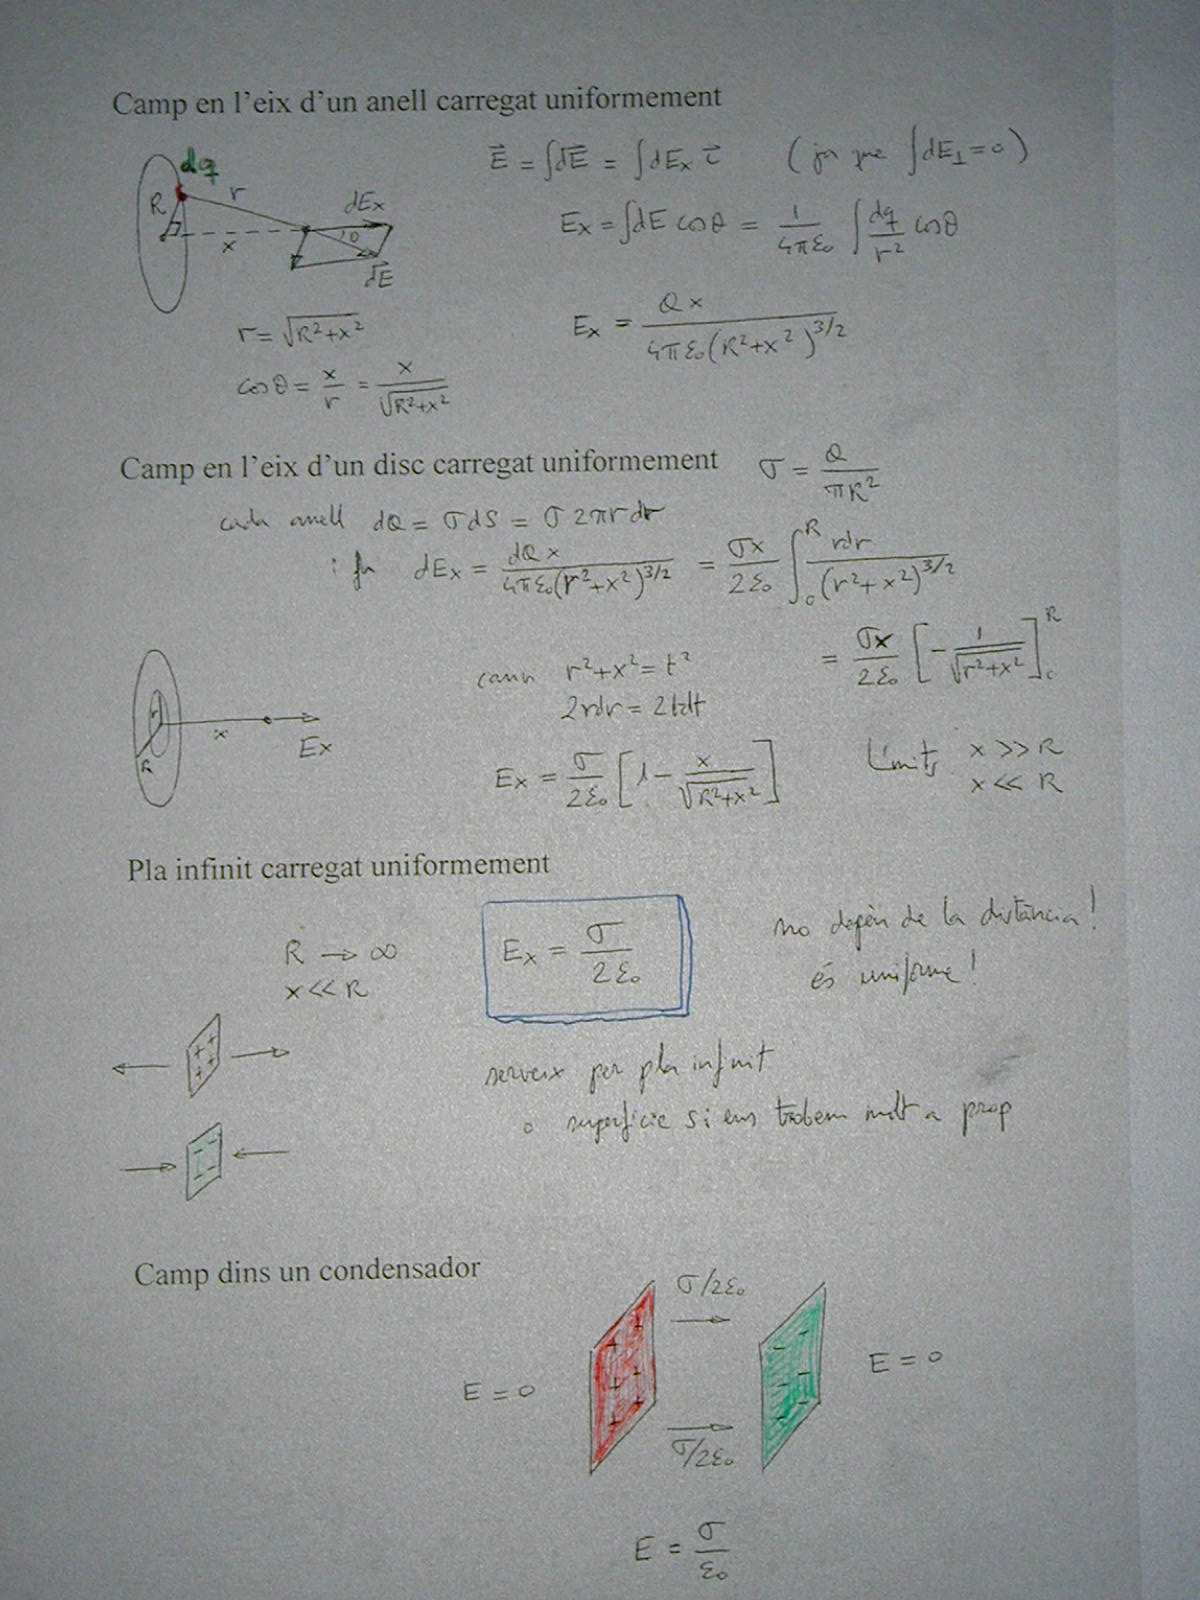 Camp en l'eix d'un anell carregat uniformement
dq
R
r
x
dEx
θ
dE⃗
E⃗ = ∫dE⃗ = ∫dEx i⃗ (ja que ∫dE⊥ = 0)
Ex = ∫dE cosθ = 1/4πε₀ ∫ dq/r² cosθ
r = √(R²+x²)
Ex = Qx / 4πε₀(R²+x²)^3/2
cosθ = x/r = x/√(R²+x²)
Camp en l'eix d'un disc carregat uniformement σ = Q/πR²
cada anell dQ = σdS = σ2πrdr
i fa dEx = dQx / 4πε₀(r²+x²)^3/2 = σx/2ε₀ ∫₀^R rdr/(r²+x²)^3/2
= σx/2ε₀ [-1/√(r²+x²)]₀^R
canvi r²+x² = t²
2rdr = 2tdt
R
x
Ex
Ex = σ/2ε₀ [1 - x/√(R²+x²)]
Límits x >> R
x << R
Pla infinit carregat uniformement
R → ∞
x << R
Ex = σ/2ε₀
no depèn de la distància!
és uniforme!
+ + + +
serveix per pla infinit
o superfície si ens trobem molt a prop
- - - -
Camp dins un condensador
σ/2ε₀
E = 0
E = 0
σ/2ε₀
E = σ/ε₀